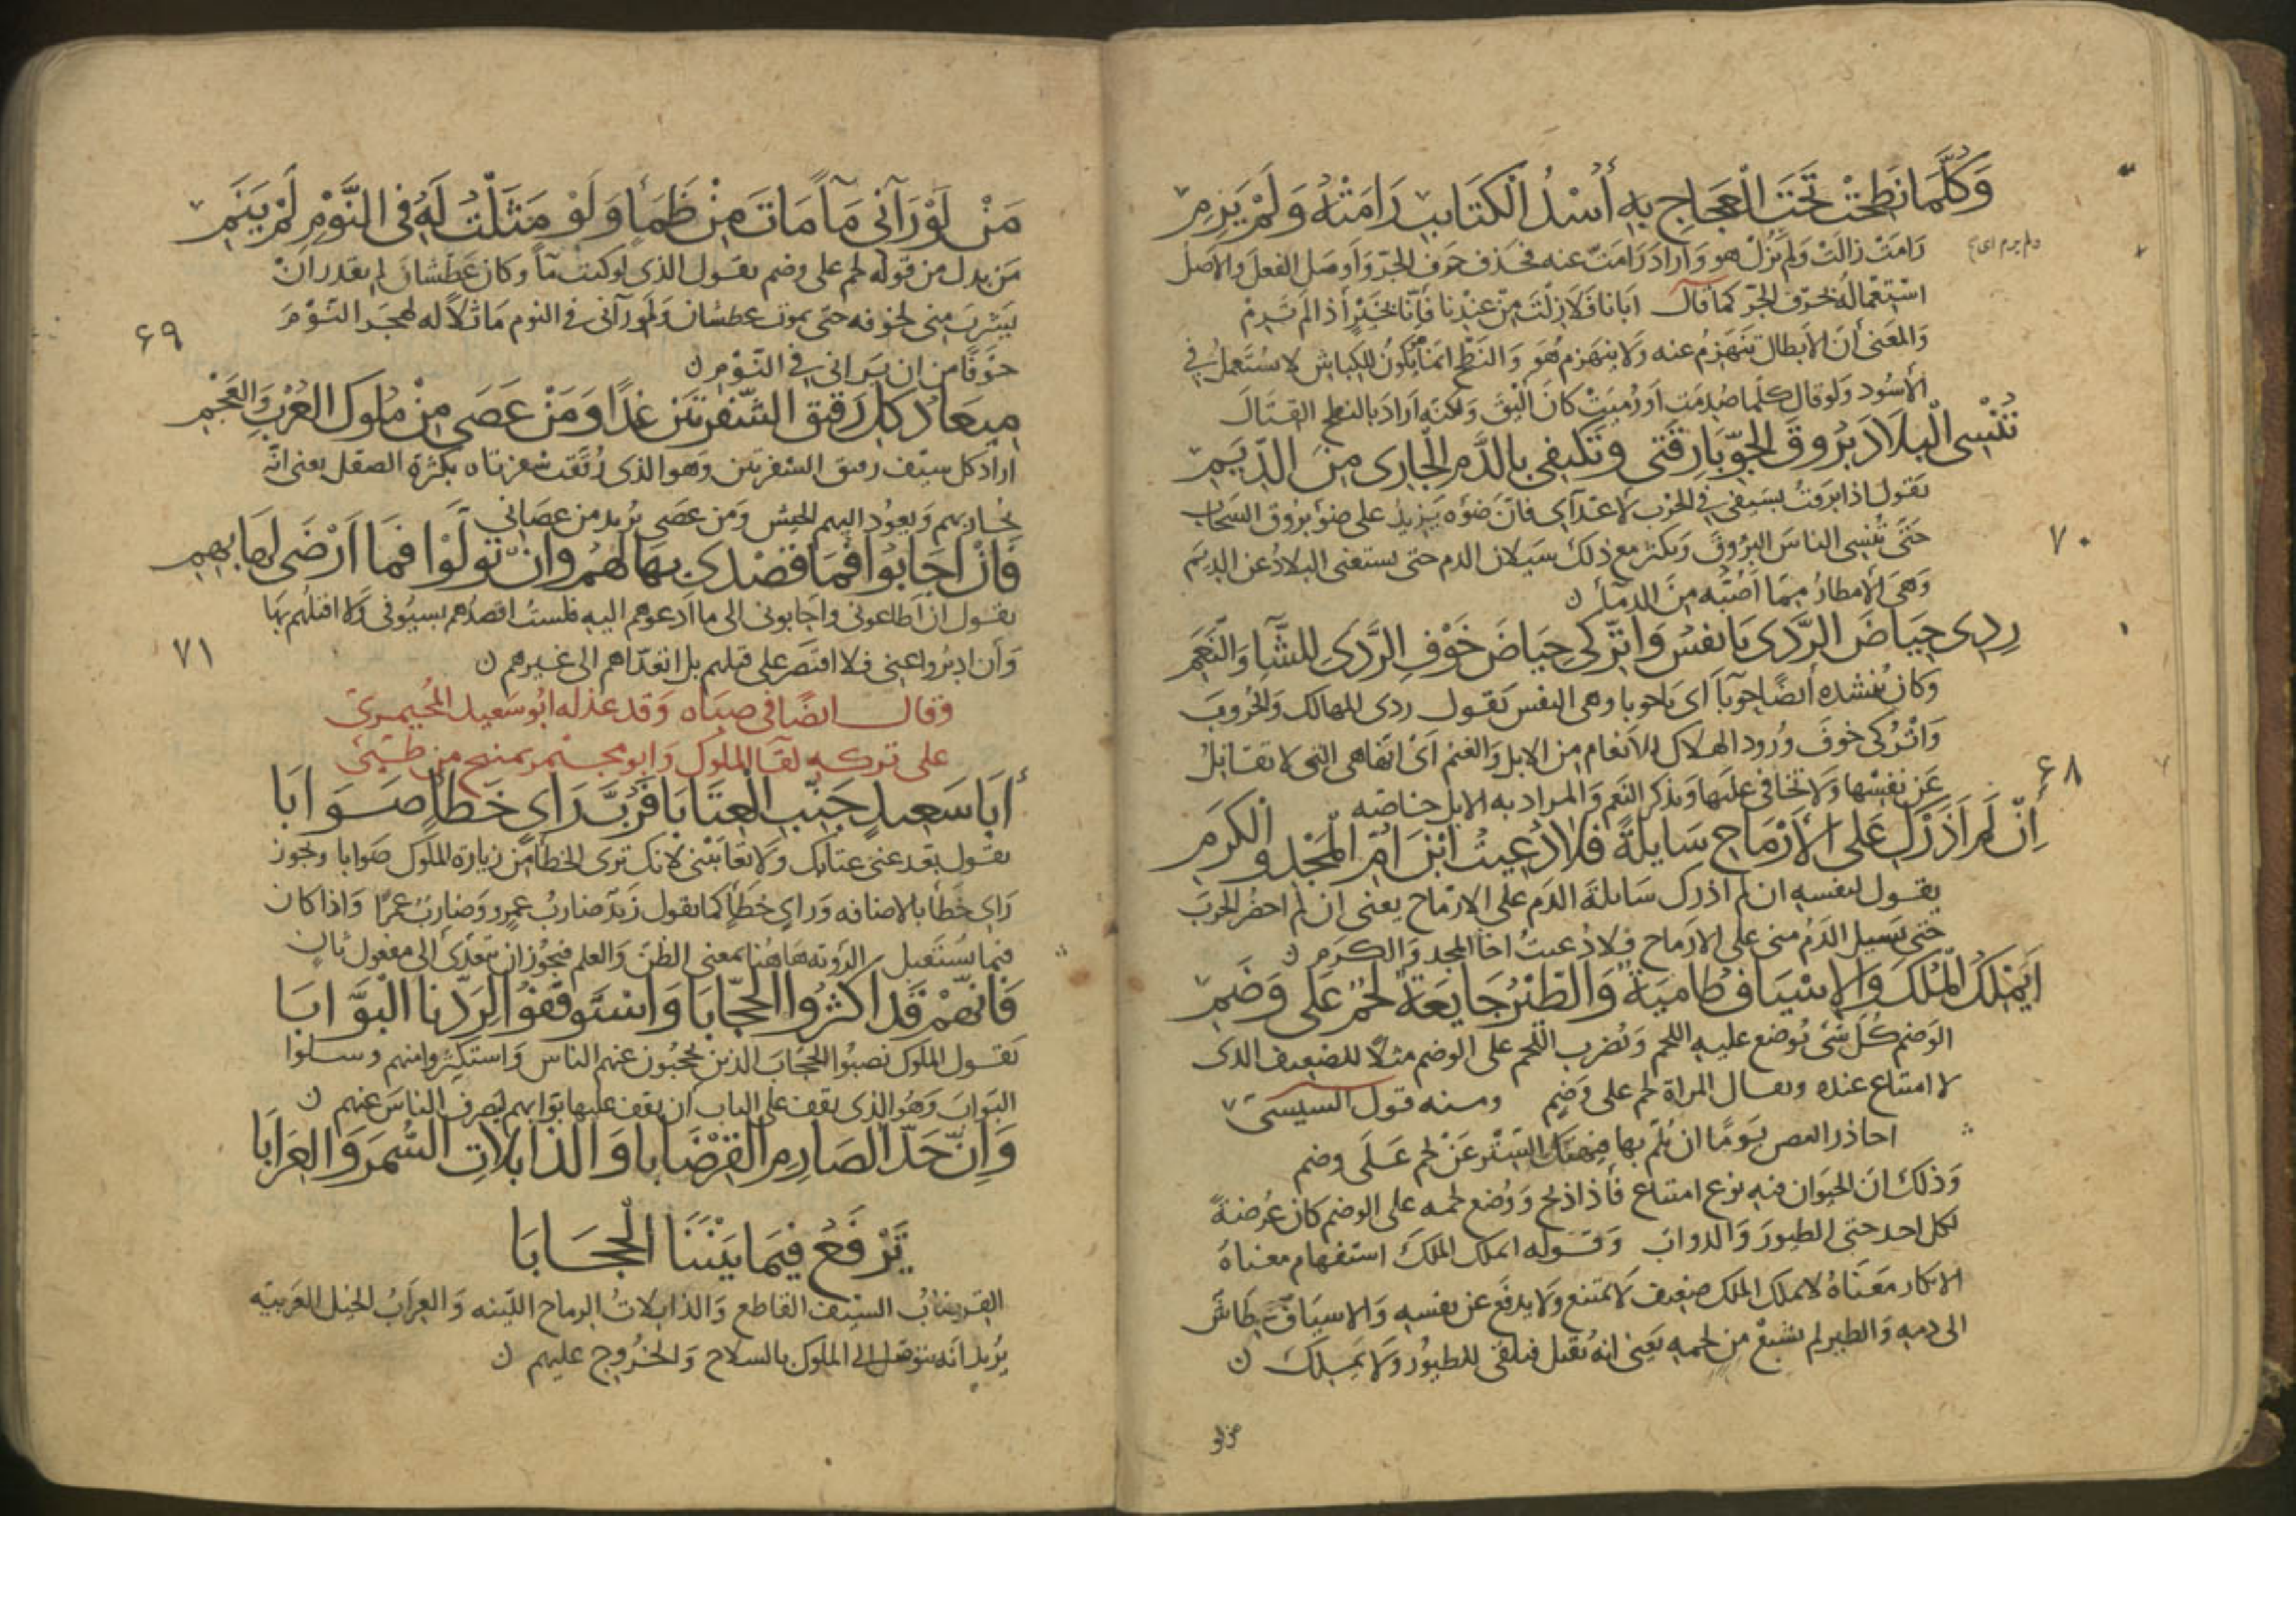 وَكُلَّمَا نَطَحَتْ تَحْتَ الْعَجَاجِ بِهِ أُسْدُ الْكَتَايِبِ رَامَتْهُ وَلَمْ يَرِمِ
رَامَتْ زالَتْ وَلم يَزُلْ هو وَاَرادَ رَامَتْ عنه فحَذف حَرف الجرّ وَاَوصَل الفعلَ والاصلُ
استِعْمالُهُ بحَرف الجرّ كما قال ابانا فَلَا رِمْتَ مِنْ عِنْدِنا فَاِنّا بخَيْرٍ اذا لم تَرِمْ
وَالمعَنى أنَ الأبطال تنهَزِمُ عنه وَلا ينهَزم هُوَ وَالنَطح انمَا يكُونُ للكِباش لا يستَعمَلُ في
الأسُود وَلو قال كلّما صُدِمَت اوَ رُمِيَتْ كانَ اَليقَ وَلكنّه اَرادَ بالنطح القتَالَ
تُنْسِى الْبِلَادَ بُرُوقَ الجَوِّ بَارِقَتى وَتَكتَفِى بِالدَّمِ الْجَارِى مِنَ الدِّيَمِ
يَقول اذا برَقتْ بسَيفى فى الحَرْب لأعدَآى فانّ ضَوْءه يَزيدُ على ضوْ بُروُق السَحاب
حَتَى تُنْسِى الناسَ البرُوقَ وَيكثر مع ذلك سَيلان الدم حتى يستغنى البلادُ عن الديَم
وَهىَ الأمطارُ بمَا اَصُبُّه مِنَ الدمآءِ ں
رِدِى حِيَاضَ الرَّدَى يَا نفسُ وَاتْرُكى حِيَاضَ خَوْفِ الرَّدَى لِلشَّآءِ وَالنَّعَمِ
وكان يُنشده أيضًا حوبآ اَى يَاحوبا وهى النفس يَقول ردى المهالك وَالحُروبَ
وَاتْرُكى خوفَ وُرود الهلاك للأنعام مِن الابل وَالغنَم اَىْ انها هى التى لا تقاتِلُ
عَن نفسْها وَلا تخافى عليَها وَيذكر النَعَم وَالمراد به الابل خاصّه
اِنْ لَم اَذَرْكِ عَلَى الأَرْمَاحِ سَايلَةً فَلا دُعِيتُ ابْنَ اُمِّ الْمَجْدِ وَالْكَرَمِ
يقول لنفسه ان لم اذرك سَايلةَ الدَم على الارْماح يعنى ان لم احضُر الحَربَ
حتى يَسيلَ الدَمُ منى على الأرماح فلا دُعيتُ اخا المجد وَالكرَم ں
اَيَمْلِكُ الْمُلْكَ وَالاسْيَافُ ظَامِيَةٌ وَالطَّيْرُ جَايعَةٌ لَحْمٌ عَلَى وَضَمِ
الوَضم كُلّ شَى يُوضع عليه اللحم وَيُضرب اللحم على الوضم مثلا للضعيف الذى
لا امتناع عنده ويقال المرَاة لحم على وَضمٍ ومنه قول السنبسىّ
احاذر الفقر يَومًا ان يُلمّ بها فيَهتك السَتْر عَنْ لحم عَلَى وضم
وَذلك انَ الحيَوان فيه نوع امتناع فأذا ذبح وَوُضع لحمه على الوضم كان عُرضةً
لكل احد حتى الطيورِ وَالدوابّ وَقَوله ايملك الملكَ استفهام معناهُ
الانكار مَعَناهُ لا يملك الملك ضعيف لا يمتنع وَلا يدفَع عن نفسه وَالاسيَافُ عطاش
الى دمه وَالطير لم تشبَعْ من لحمه يَعنى انهُ يُقتل فيلقى للطيُور وَلا يَملِك ں
٧٠
٦٨
مَنْ لَوْ رَآنى مَآءً مَاتَ مِنْ ظَمَأٍ وَلَوْ مَثَلْتُ لَهُ فى النَّوْمِ لَمْ يَنَمِ
مَن بدل من قوله لحم على وضم يقول الذى لو كنتُ مآءً وكان عَطشان لم يقدر ان
يَشربَ منى لخوفه حتى يموت عطشان وَلَو رآنى فى النوم مَاثلًا له لهجَرَ النَوْمَ
خوَفًا من ان يَرانى فى النَوْم ں
٦٩
مِيعَادُ كُلِّ رَقيقِ الشَّفْرَتَيْنِ غَدًا وَمَنْ عَصَى مِنْ مُلوكِ العُرْبِ وَالعَجَمِ
اراد كل سيَف رقيق الشفرتين وَهو الذى رُقّقت شفرتاه بكثرة الصقل يعنى انّه
يُحاربهم وَيعوُد اليهم الجيش وَمن عصَى يُريد من عصَانى
فَاِنْ اَجَابُوا فَمَا قَصْدِى بِهَا لَهُمْ وَاِنْ تَوَلَّوْا فَمَا اَرْضَى لَهَا بِهِمِ
يقول ان اَطاعونى وَاجَابونى الى ما ادعوهم اليه فلستُ اقصدُهم بسيُوفى وَلا اقتلُهم بهَا
وَأن ادبرُوا عنى فلا اقتصر على قتلهم بل اتعدّاهم الى غيرهم ں
٧١
وقال ايضًا فى صباه وَقد عذله ابُو سَعيد المُجيمرىّ
على تركه لقآ الملوك وابو مجيمر بمنبج من طيّئ
أَبَا سَعِيدٍ جَنِّبِ الْعِتَابَا فَرُبَّ رَاىٍ خَطَأٍ صَوَابَا
يقول بَعّد عنى عتابك وَلا تعَاتبنى لانك ترى الخطأ من زيارة الملوك صَوابا ويجوز
رَاىِ خَطَأ بالاضافه وَرَاىٍ خَطَإٍ كما يقول زَيد ضاربُ عمرٍو وَضاربٌ عمرًا وَاذا كان
فيما يُستَقبل الرؤية هَاهُنا بمعنى الظنّ وَالعلم فيجوُز ان يتعَدّى الى مفعول ثان
فَاِنَّهُمْ قَدْ اَكْثَرُوا الحُجَّابَا وَاسْتَوقَفُوا لِرَدِّنَا الْبَوَّابَا
يَقول الملوك نصبُوا الحُجّابَ الذين يحجبُون عنهم الناس وَاستكثروا منهم وسألوا
البَوابَ وَهُو الذى يقف على الباب ان يقف عليها بَوّابهم ليصرفَ الناسَ عنهم ں
وَاِنَّ حَدَّ الصَارِمِ الْقِرْضَابا وَالذابلاتِ السُّمرَ وَالعِرَابَا
تَرْفَعُ فيَمَا بَيْنَنَا الْحِجَابَا
القرضابُ السيَف القاطع وَالذابلاتُ الرماح الليّنه وَالعِرَابُ الخيل العَربيّه
يُريد انه يتوَصّل الى الملوك بالسلاح وَالخرُوج عليهم ں